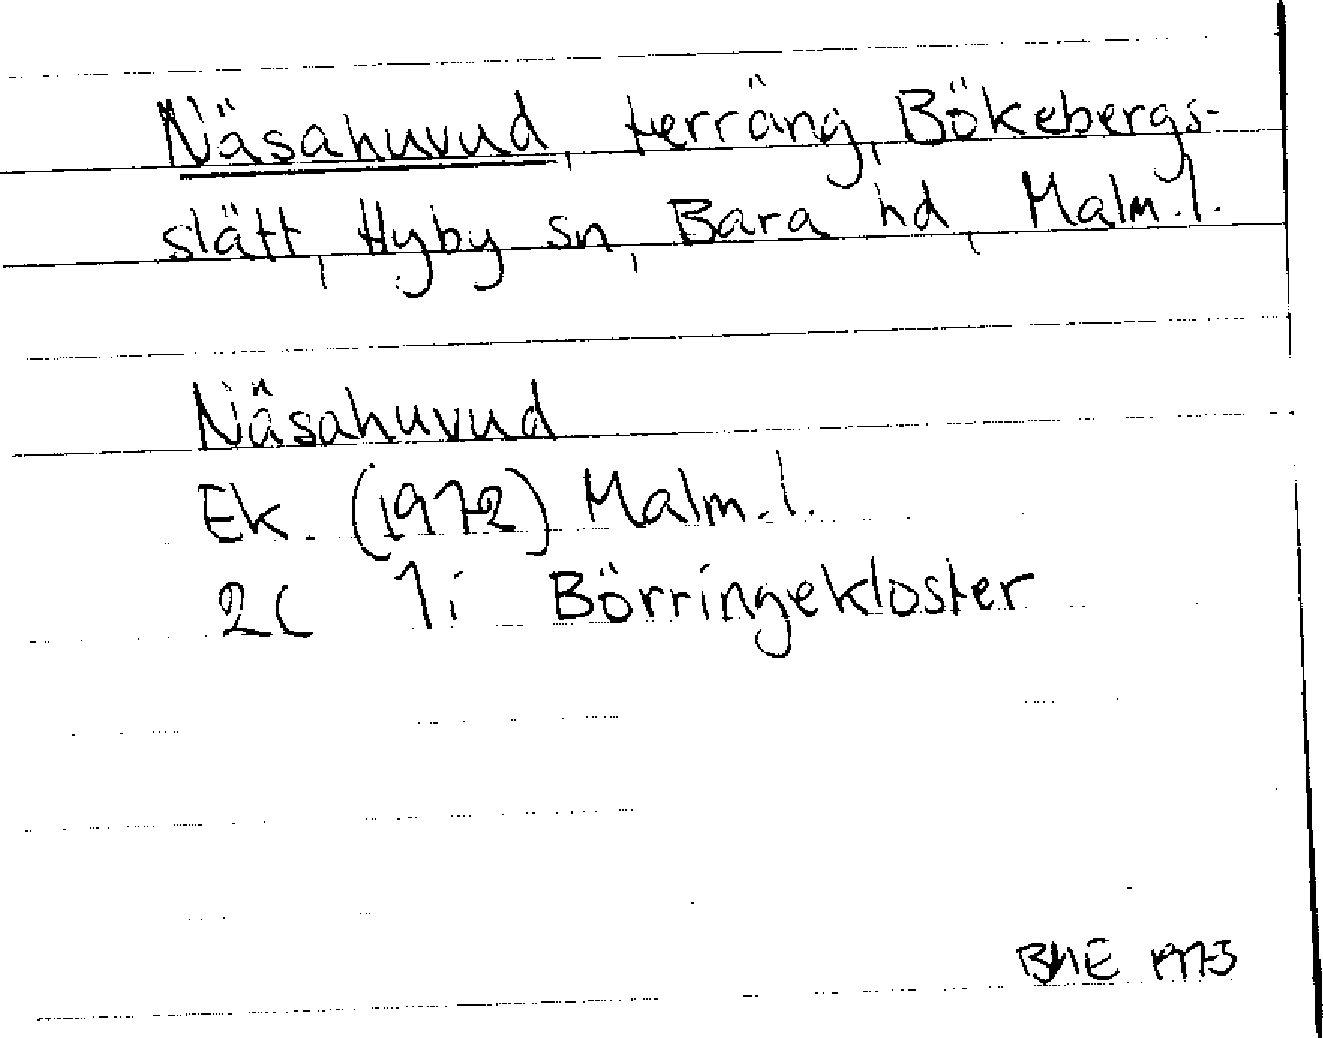 Näsahuvud, terräng, Bökebergs-
slätt, Hyby sn, Bara hd, Malm.l.
Näsahuvud
Ek. (1972) Malm.l.
2C 1i Börringekloster
BhE 1975